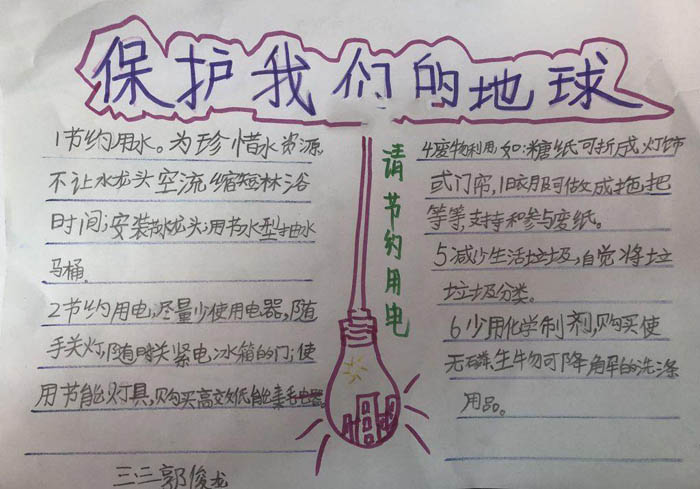 保护我们的地球
1节约用水。为珍惜水资源
不让水龙头空流缩短淋浴
时间;安装节水龙头;用节水型抽水
马桶.
2节约用电;尽量少使用电器,随
手关灯,随时关紧电冰箱的门;使
用节能灯具,购买高效低能
三.三郭俊龙
请节约用电
4废物利用,如:糖纸可折成灯饰
或门帘,旧衣服可做成拖把
等等,支持和参与废纸。
5减少生活垃圾,自觉将垃
垃圾分类。
6少用化学制剂,购买使
无磷、生物可降解的洗涤
用品。